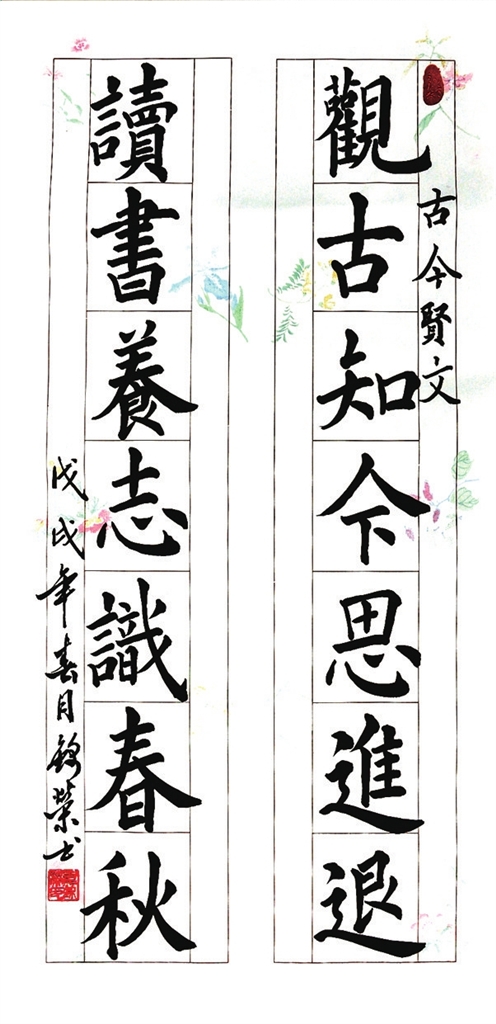 古今賢文
觀古知今思進退
讀書養志識春秋
戊戌年春月榮书